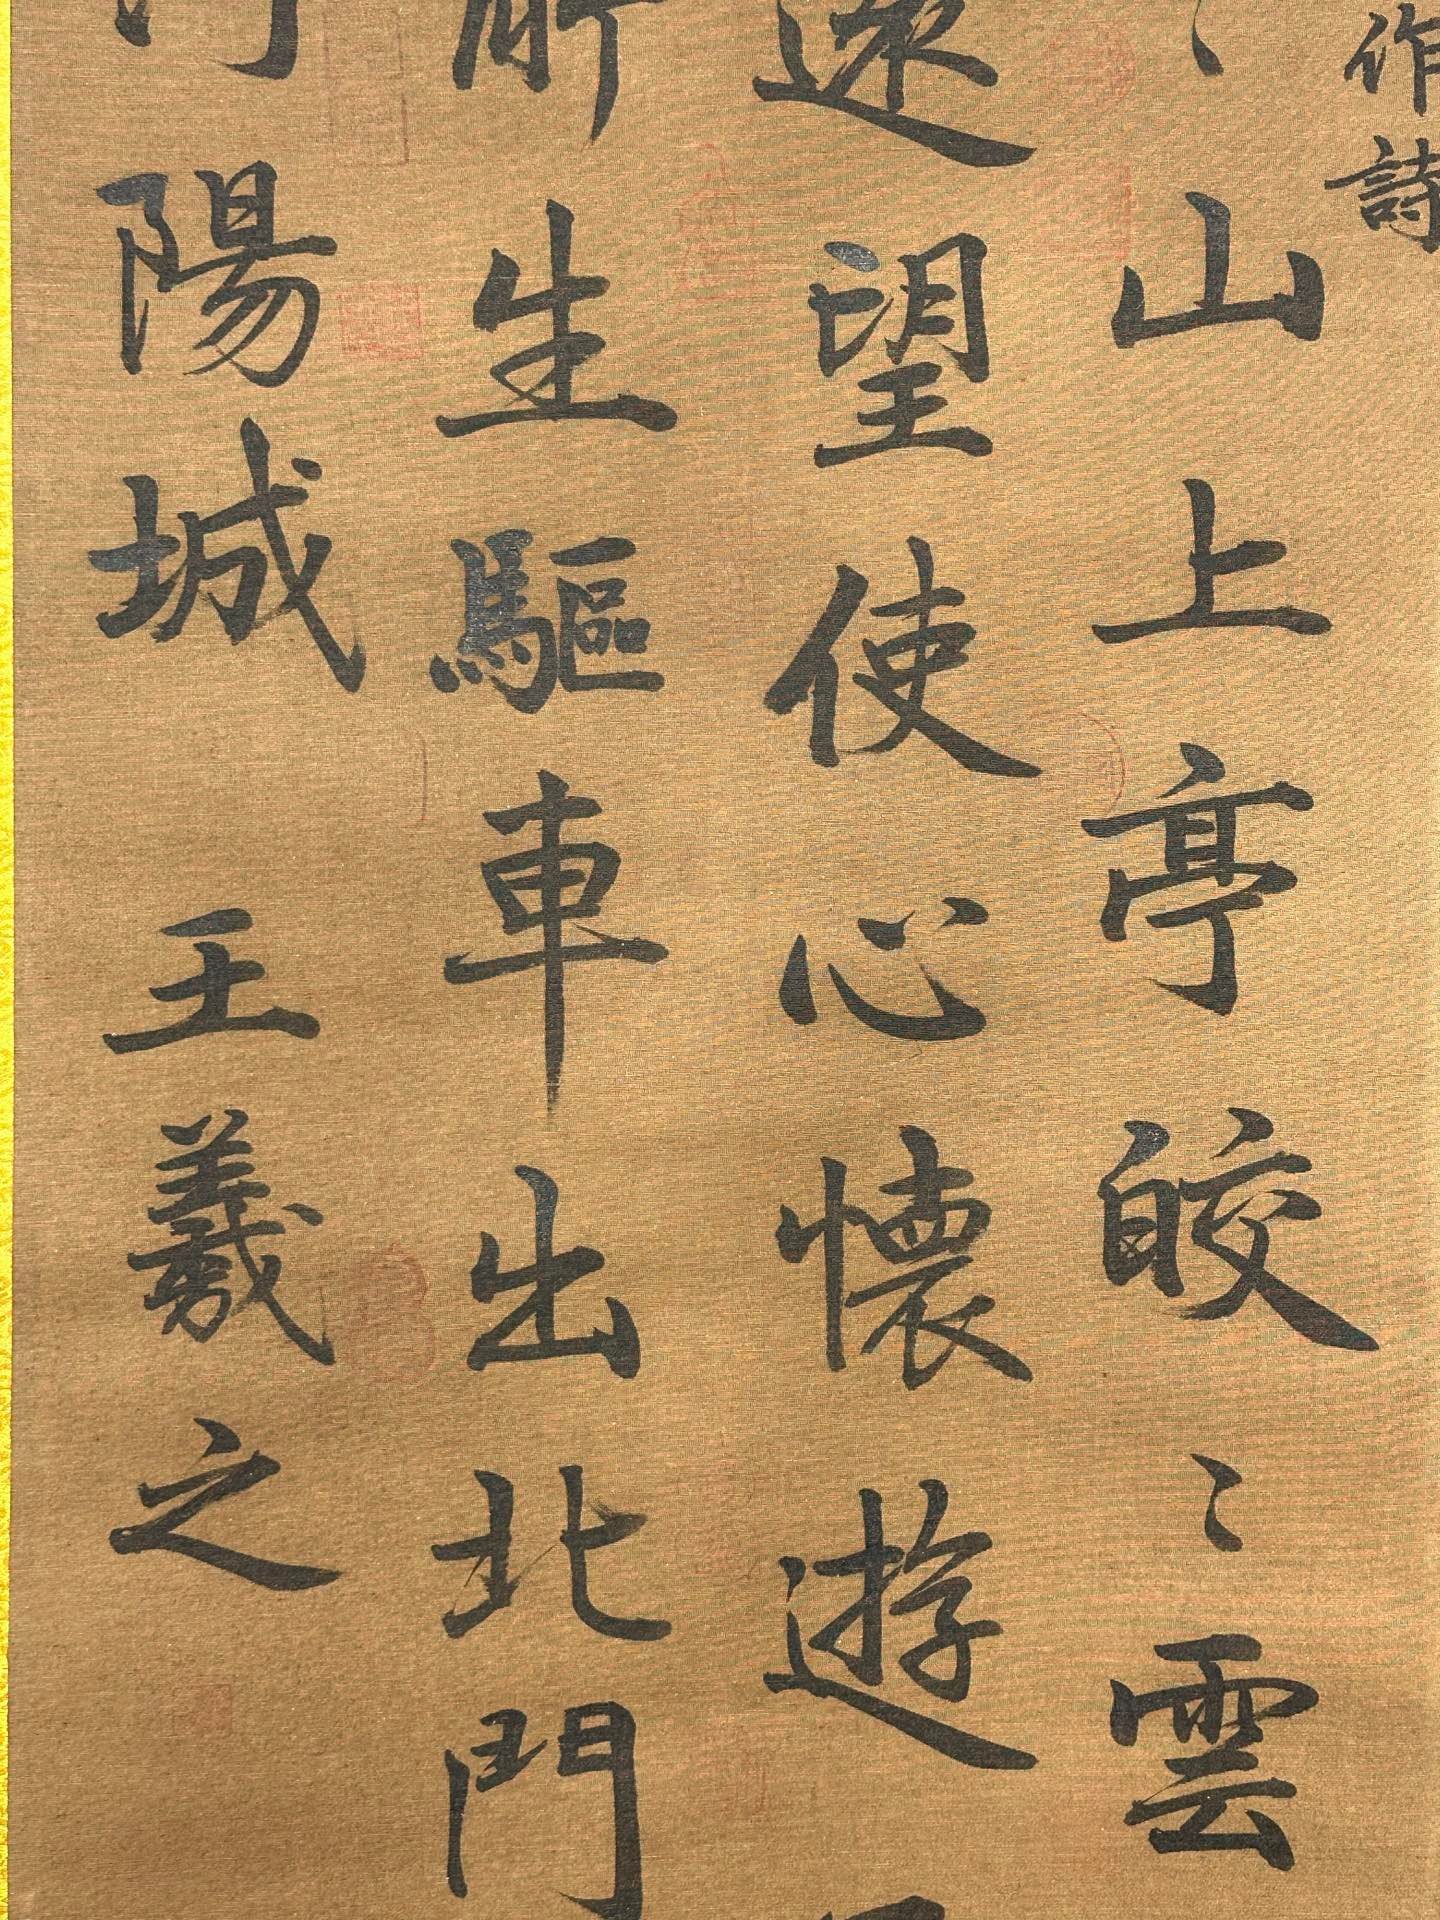 作詩
〻山上亭皎〻雲
遠望使心懷遊
所生驅車出北門
陽城 王羲之